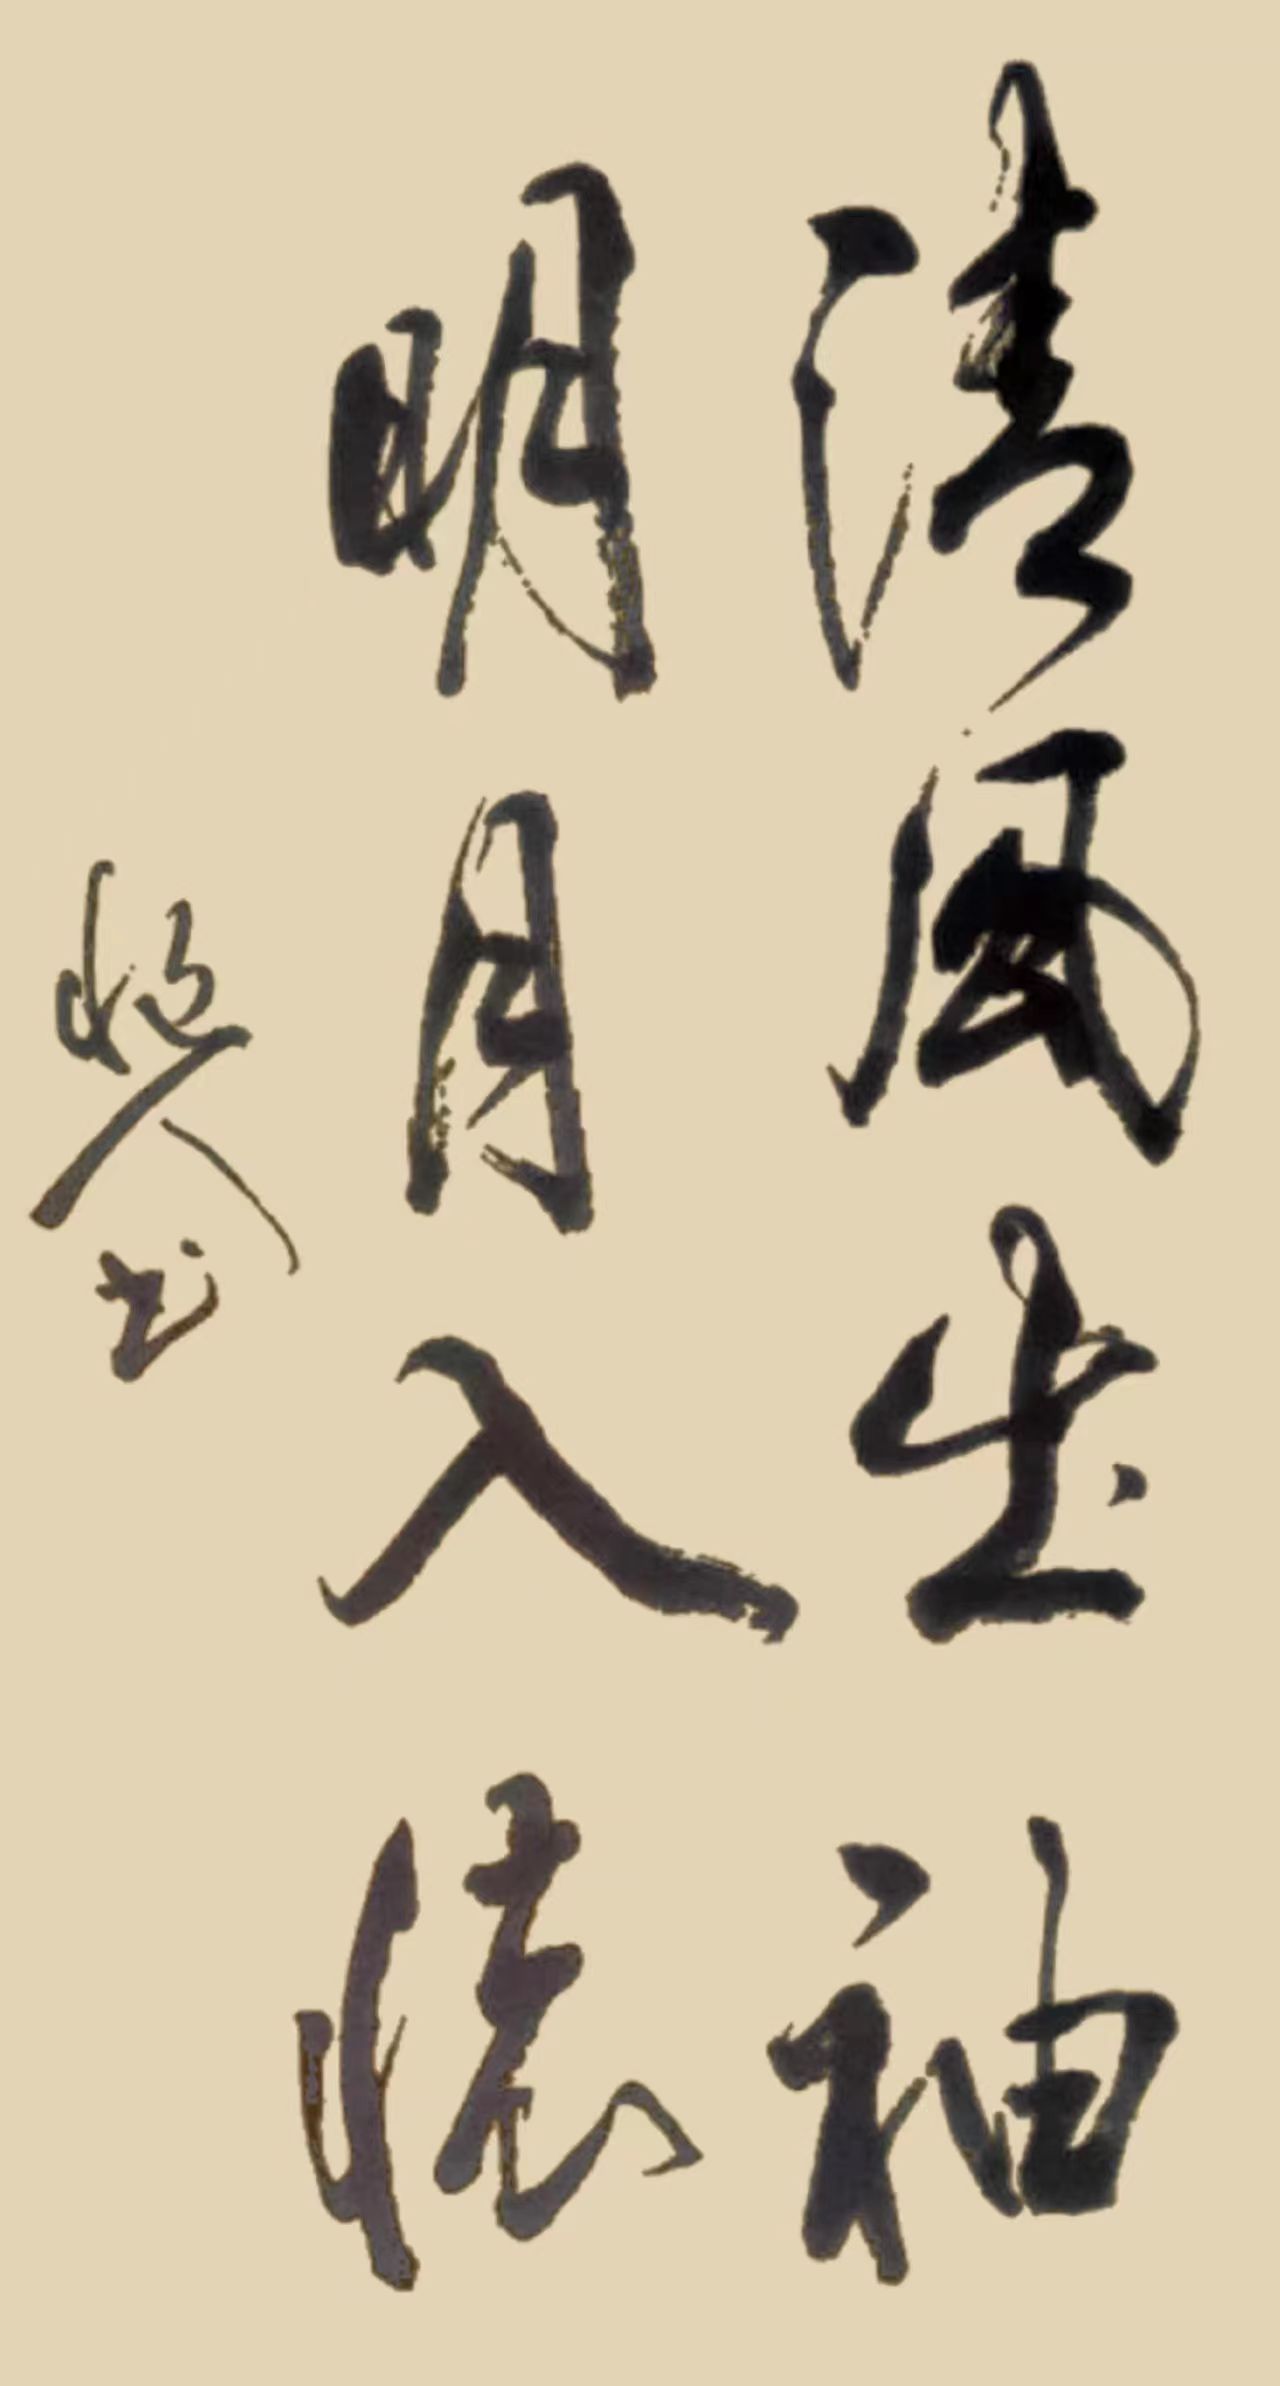 清风生袖
明月入怀
人书